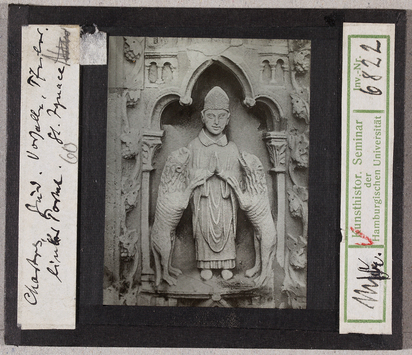 Chartres, Süd. Vorhalle, Pfeiler
linkes Portal St. Ignace
60
Inv.-Nr. 6822
Kunsthistor. Seminar
der
Hamburgischen Universität